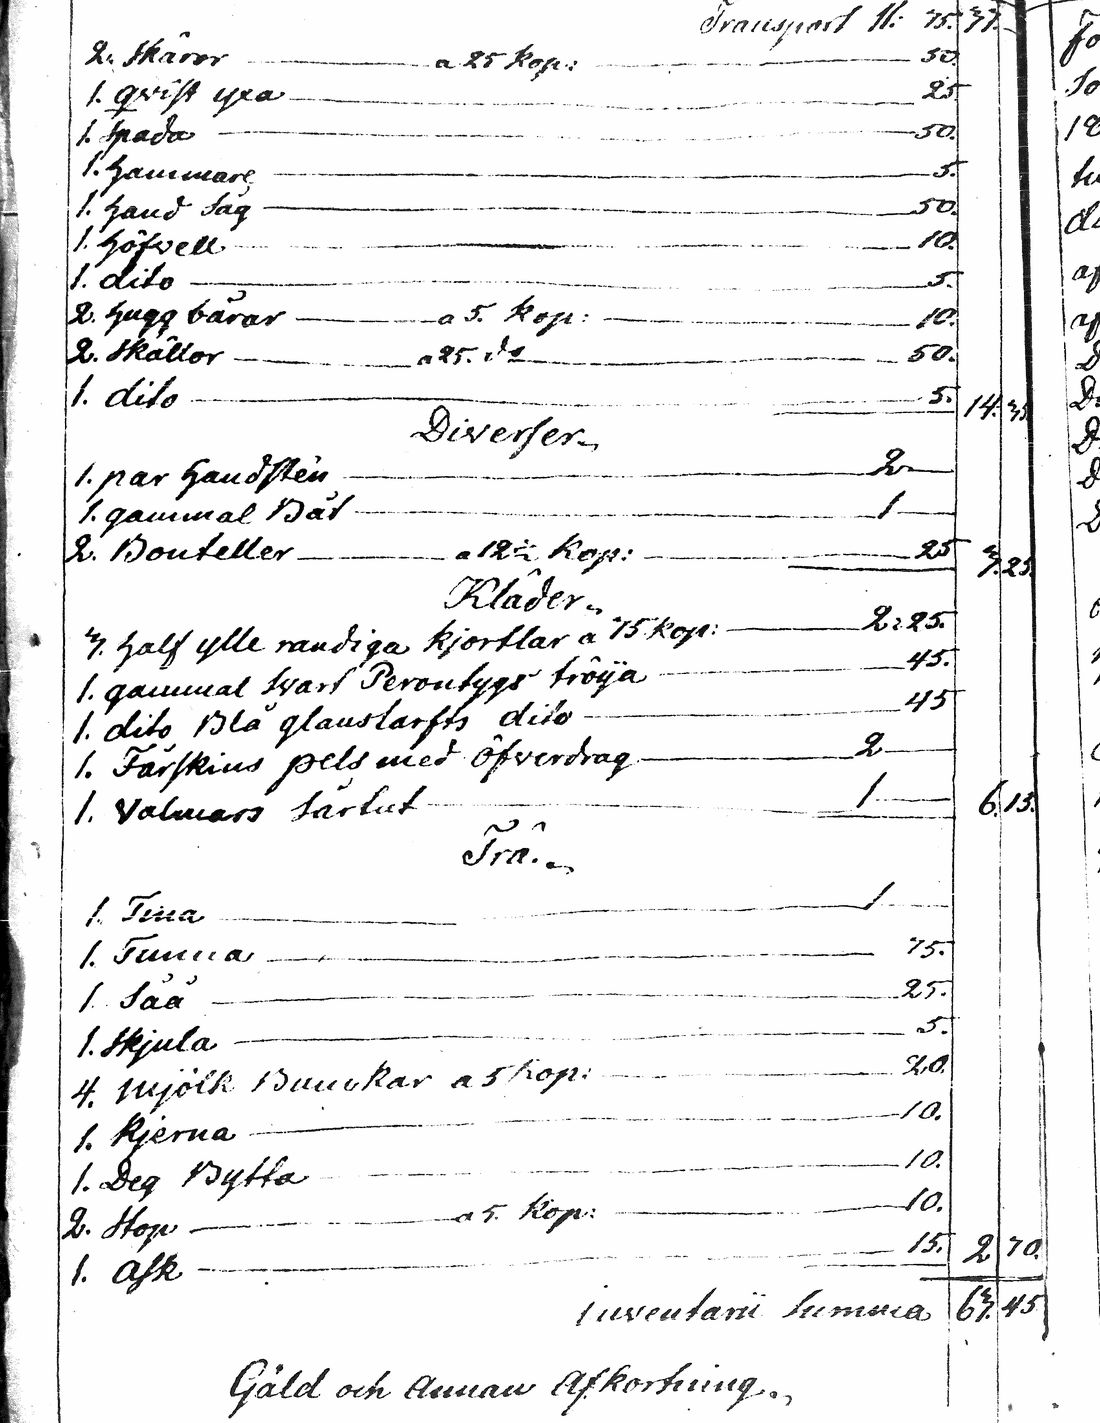 Transport R: 75. 37.
2. Skäror a 25 kop: 50.
1. qvist yxa 25
1. Spada 50.
1. Hammare 5.
1. Hand Såg 50.
1. Höfvell 10.
1. dito 5.
2. Hugg bårar a 5. kop: 10.
2. Skållor a 25. do 50.
1. dito 5. 14. 35.
Diverser
1. par Handsten 2
1. gammal Båt 1
2. Bouteller a 12½ Kop: 25 3. 25.
Kläder
3. Half ylle randiga kjortlar a 75 kop: 2: 25.
1. gammal Svart Perontygs tröija 45.
1. dito Blå glanstarfts dito 45
1. Fårskins pels med öfverdrag 2
1. Valmars Särtut 1 6. 15.
Trä.
1. Tina 1
1. Tunna 75.
1. Såå 25.
1. Skjula 5.
4. Mjölk Bunckar a 5 kop: 20.
1. Kjerna 10.
1. Deg Bytta 10.
2. Stop a 5. kop: 10.
1. Ask 15. 2 70.
inventarii Summa 63. 45
Gäld och annan Afkortning.